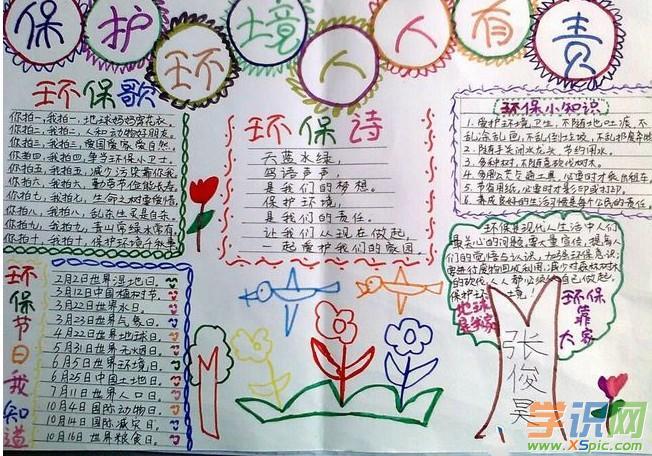 保护环境人人有责
环保歌
你拍一,我拍一,地球妈妈穿花衣。
你拍二,我拍二,人和动物好朋友。
你拍三,我拍三,爱国爱家爱自然。
你拍四,我拍四,争当环保小卫士。
你拍五,我拍五,减少污染靠你我。
你拍六,我拍六,
你拍七,我拍七,生命之树要珍惜。
你拍八,我拍八,乱杀生灵是自杀。
你拍九,我拍九,青山常绿水常有。
你拍十,我拍十,保护环境千秋事。
环保诗
天蓝水绿,
鸟语声声,
是我们的梦想。
保护环境,
是我们的责任。
让我们从现在做起,
一起爱护我们的家园。
环保小知识
1.爱护环境卫生,不随地吐痰,不
乱涂乱画,不乱倒垃圾,
2.随手关闭水龙头,节约用水。
3.多种树,不随意砍伐树木。
4.多用公共交通工具,必要时才乘出租车。
5.节省用纸,必要时才复印或打印。
6.养成良好的生活习惯是每个公民的责任。
环保是现代人生活中人们
最关心的问题,要大量宣传,提高人
们的觉悟与认识,加强环保意识;
的砍伐,人人都必须从自己做起,
保护环境
地球
是我家
环保
靠
大家
张俊昊
环保节日我知道
2月2日世界湿地日。
3月12日中国植树节。
3月22日世界水日。
3月23日世界气象日。
4月22日世界地球日。
5月31日世界无烟日。
6月5日世界环境日。
6月25日中国土地日。
7月11日世界人口日。
10月4日国际动物日。
10月14日国际减灾日。
10月16日世界粮食日。
学识网
www.XSpic.com